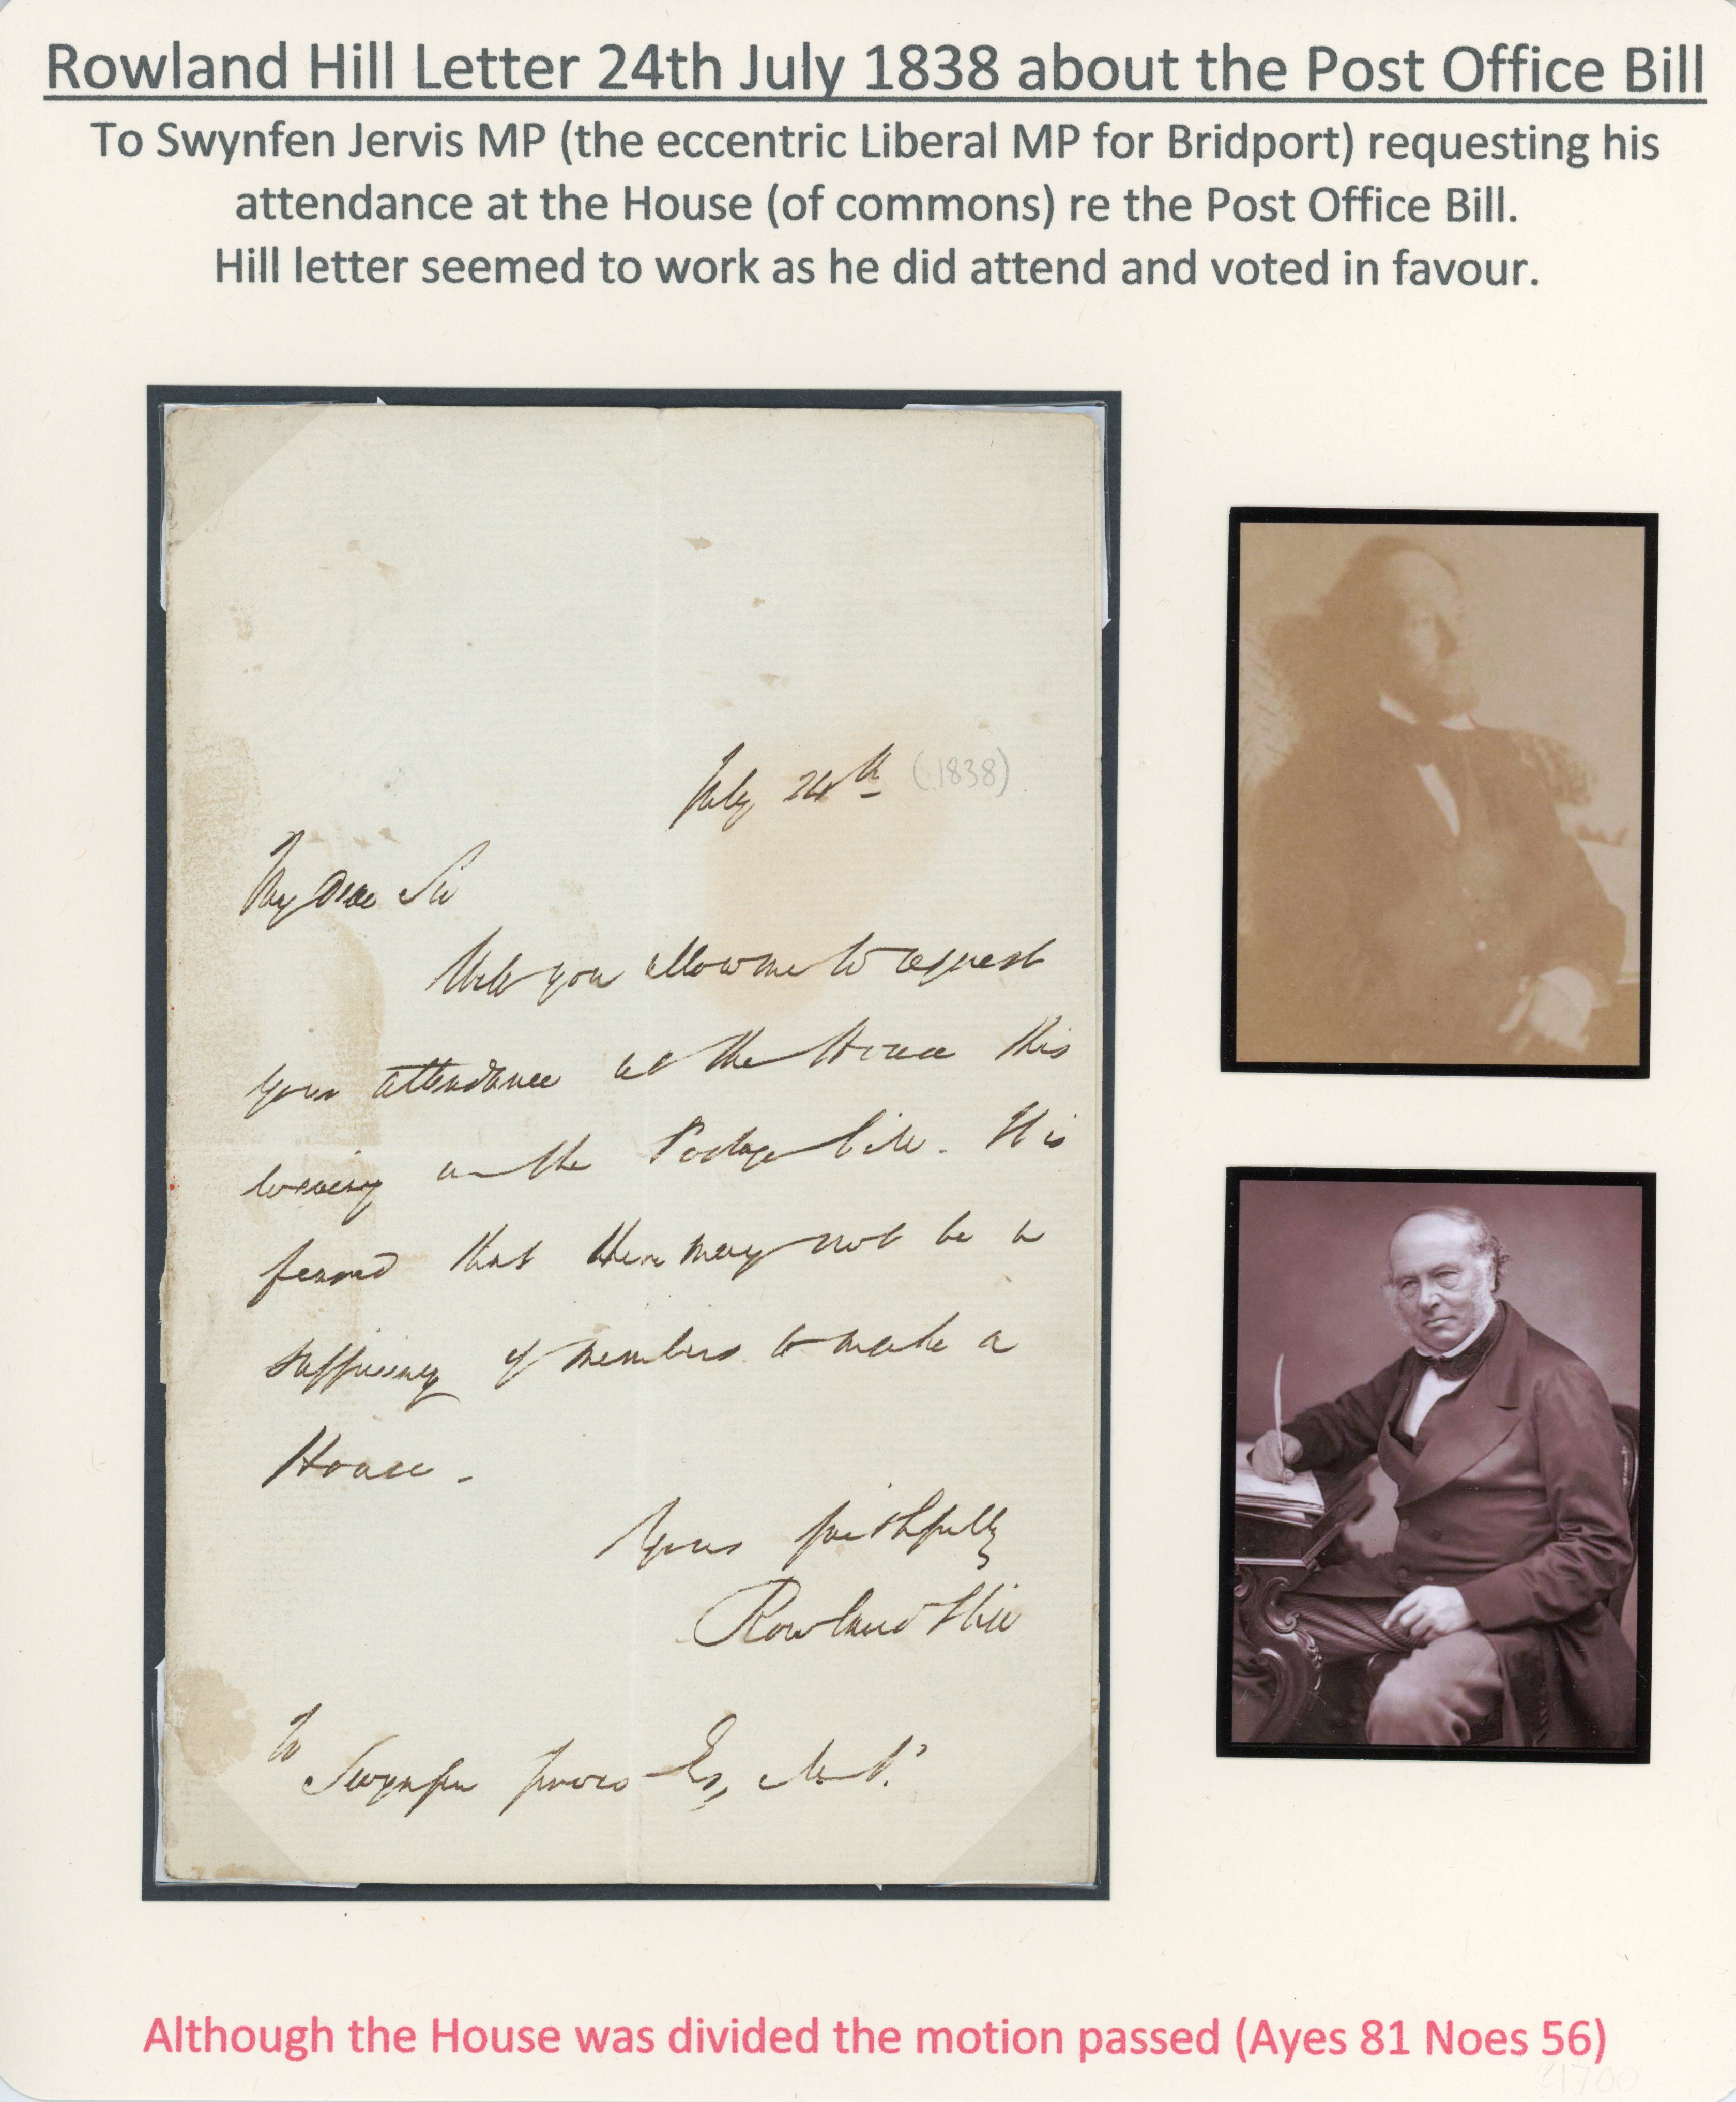 Rowland Hill Letter 24th July 1838 about the Post Office Bill
To Swynfen Jervis MP (the eccentric Liberal MP for Bridport) requesting his
attendance at the House (of commons) re the Post Office Bill.
Hill letter seemed to work as he did attend and voted in favour.
July 24th (1838)
My Dear Sir
Will you allow me to request
your attendance at the House this
evening on the Postage bill. It is
feared that there may not be a
sufficiency of members to make a
House.
Yours faithfully
Rowland Hill
To
Swynfen Jervis Esq, M.P.
Although the House was divided the motion passed (Ayes 81 Noes 56)
£1700